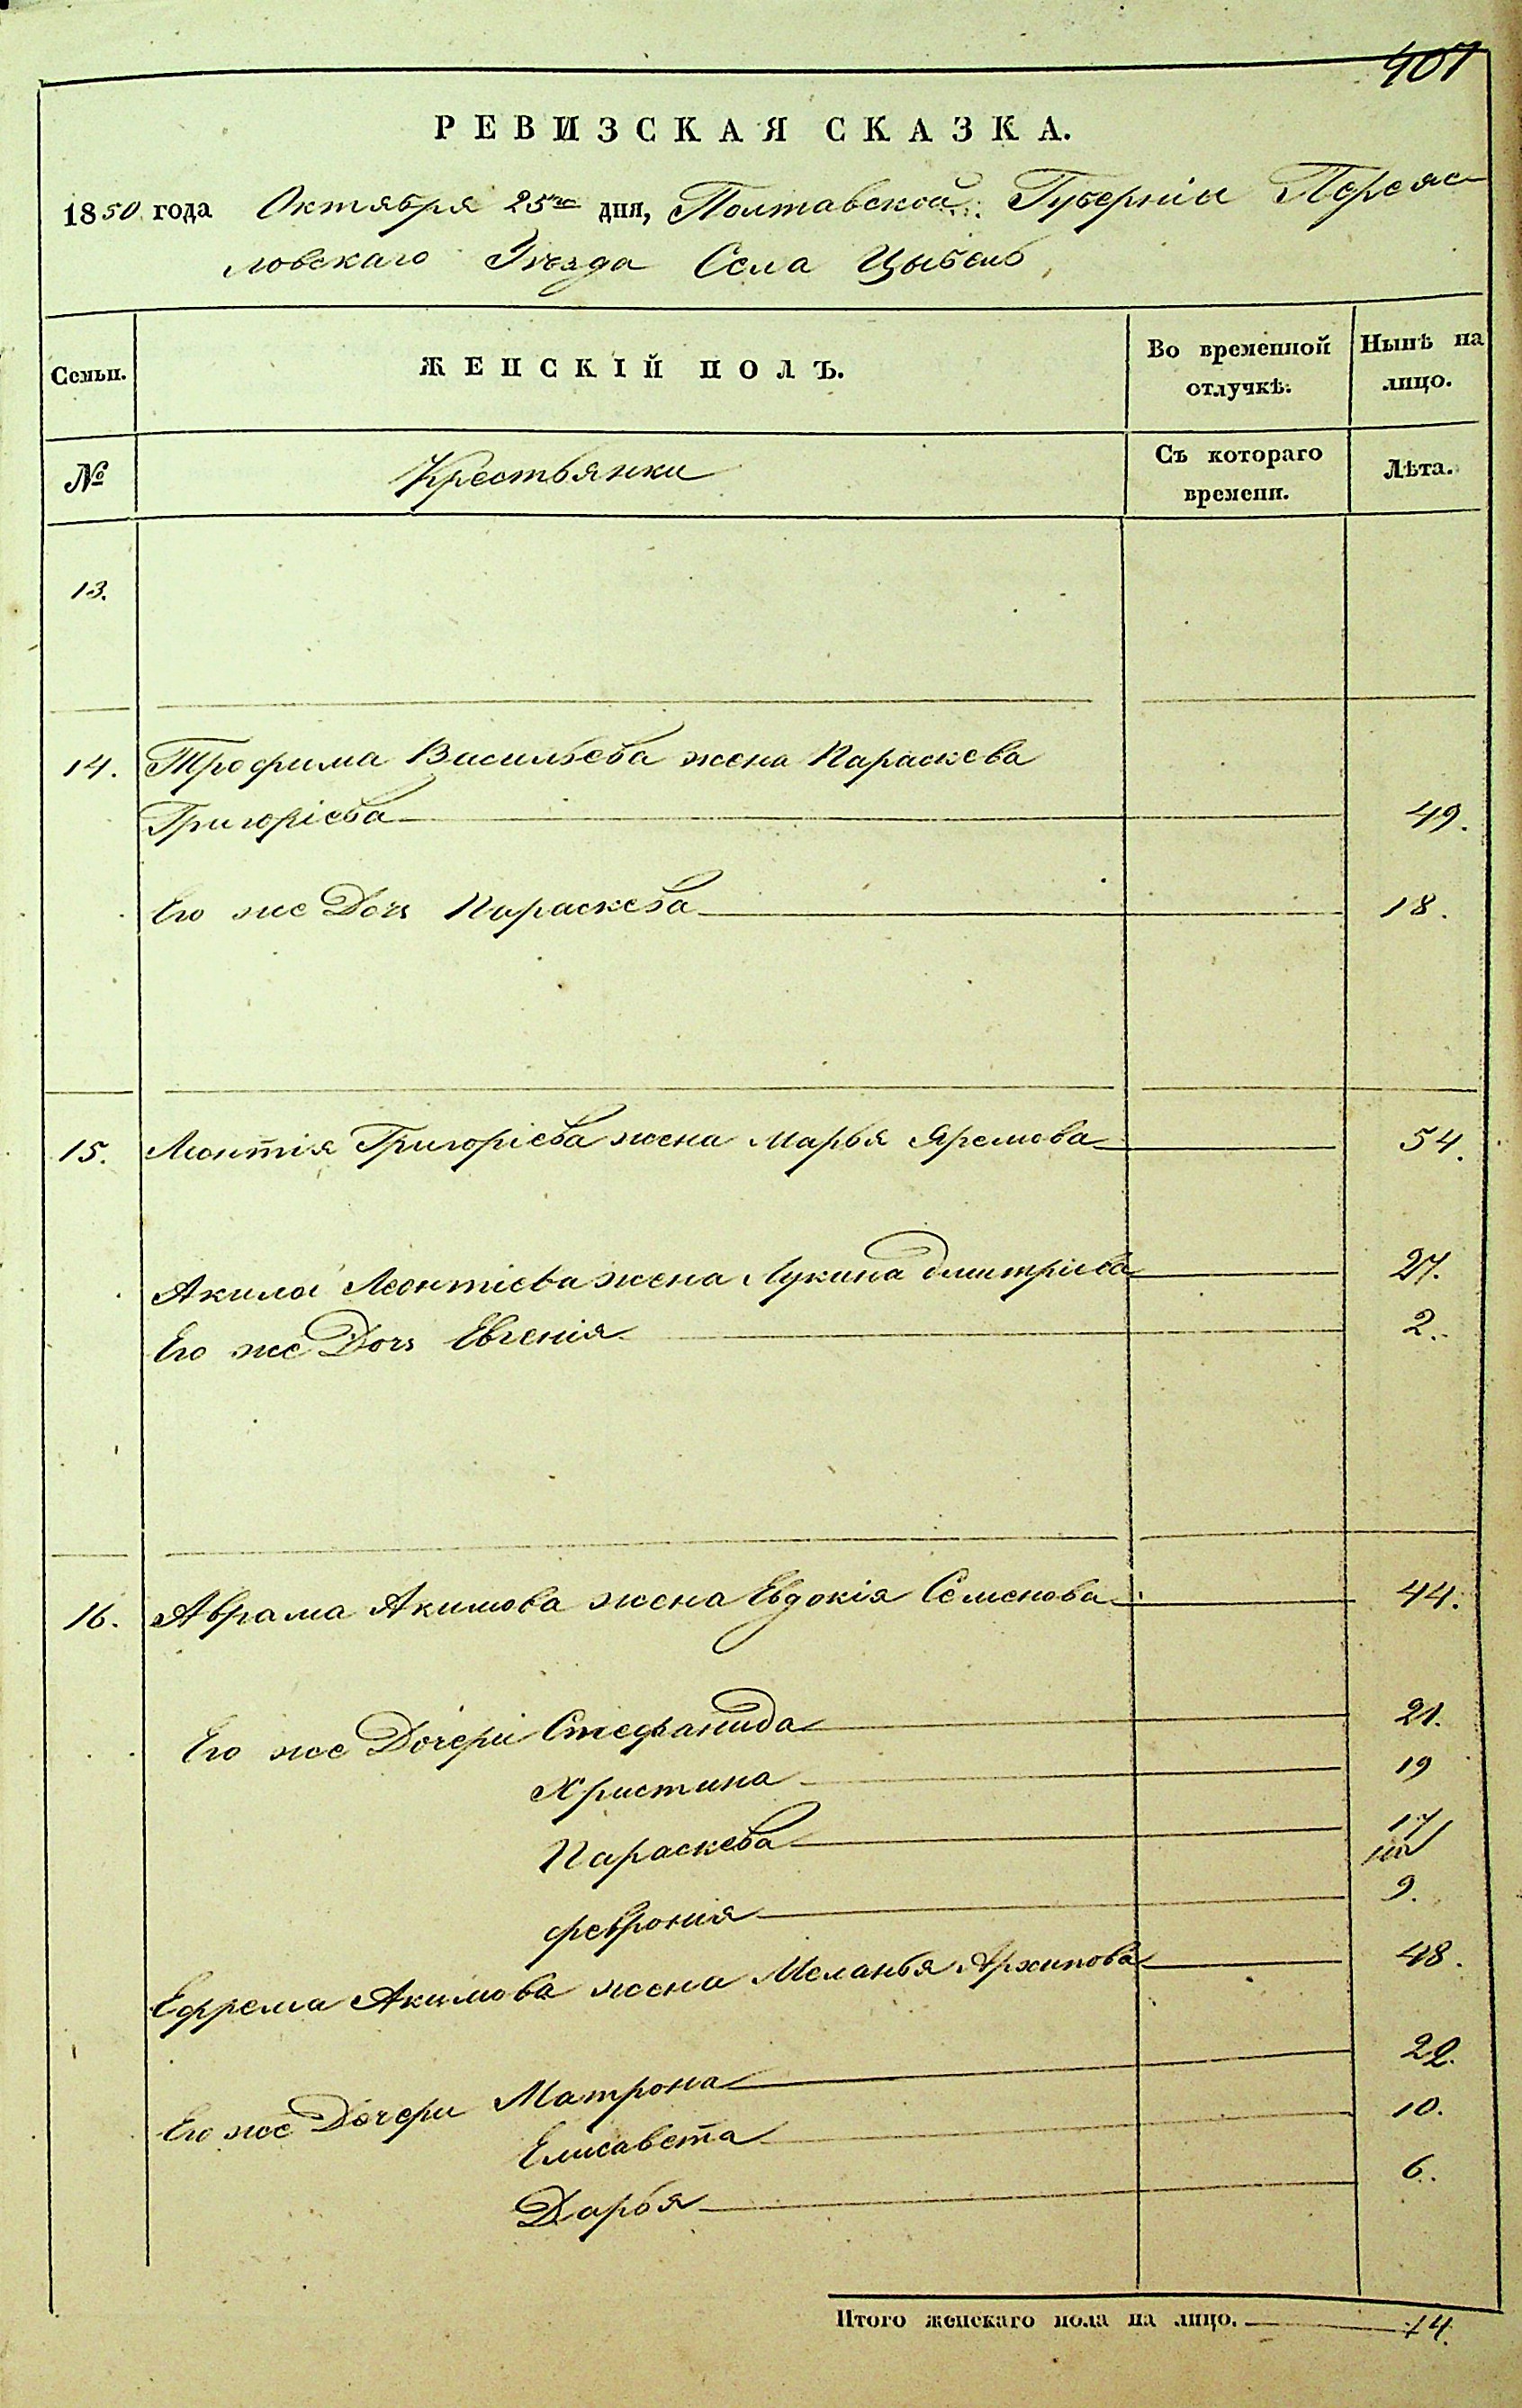 407
РЕВИЗСКАЯ СКАЗКА.
1850 года Октября 25го дня, Полтавской Губерніи Переяс-
ловскаго Уѣзда Села Цыбель
Семьи. ЖЕНСКІЙ ПОЛЪ. Во временной отлучкѣ. Нынѣ на лицо.
№ Крестьянки Съ котораго времени. Лѣта.
13.
14. Трофима Васильева жена Параскева
Григоріева 49.
Его же Дочь Параскева 18.
15. Леонтія Григоріева жена Марья Яремова 54.
Акилы Леонтіева жена Лукина Дмитріева 27.
Его же Дочь Евгенія 2.
16. Аврама Акимова жена Евдокія Семенова 44.
Его же Дочери Стефанида 21.
Христина 19
Параскева 17
Феврония 9.
Ефрема Акимова жена Меланья Архипова 48.
Его же Дочери Матрона 22.
Елисавета 10.
Дарья 6.
Итого женскаго пола на лицо. 14.